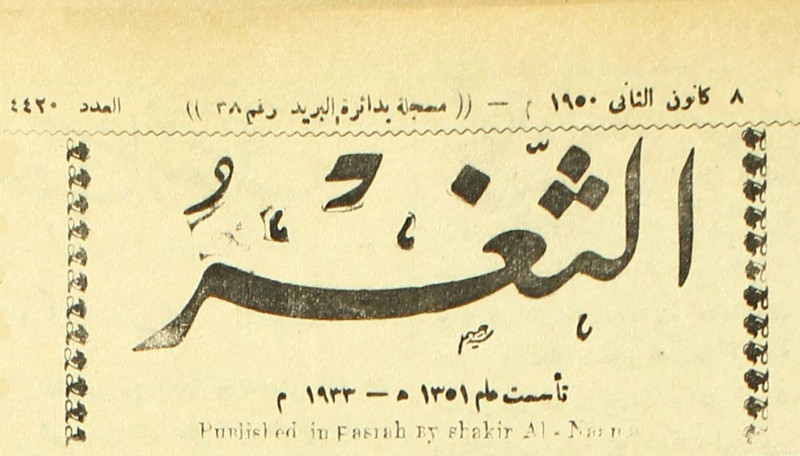 ٨ كانون الثاني ١٩٥٠ م — (( مسجلة بدائرة البريد رقم ٣٨ )) العدد ٤٤٢٠
الثّغرُ
تأسست عام ١٣٥١ ه — ١٩٣٣ م
Published in Basrah By shakir Al-